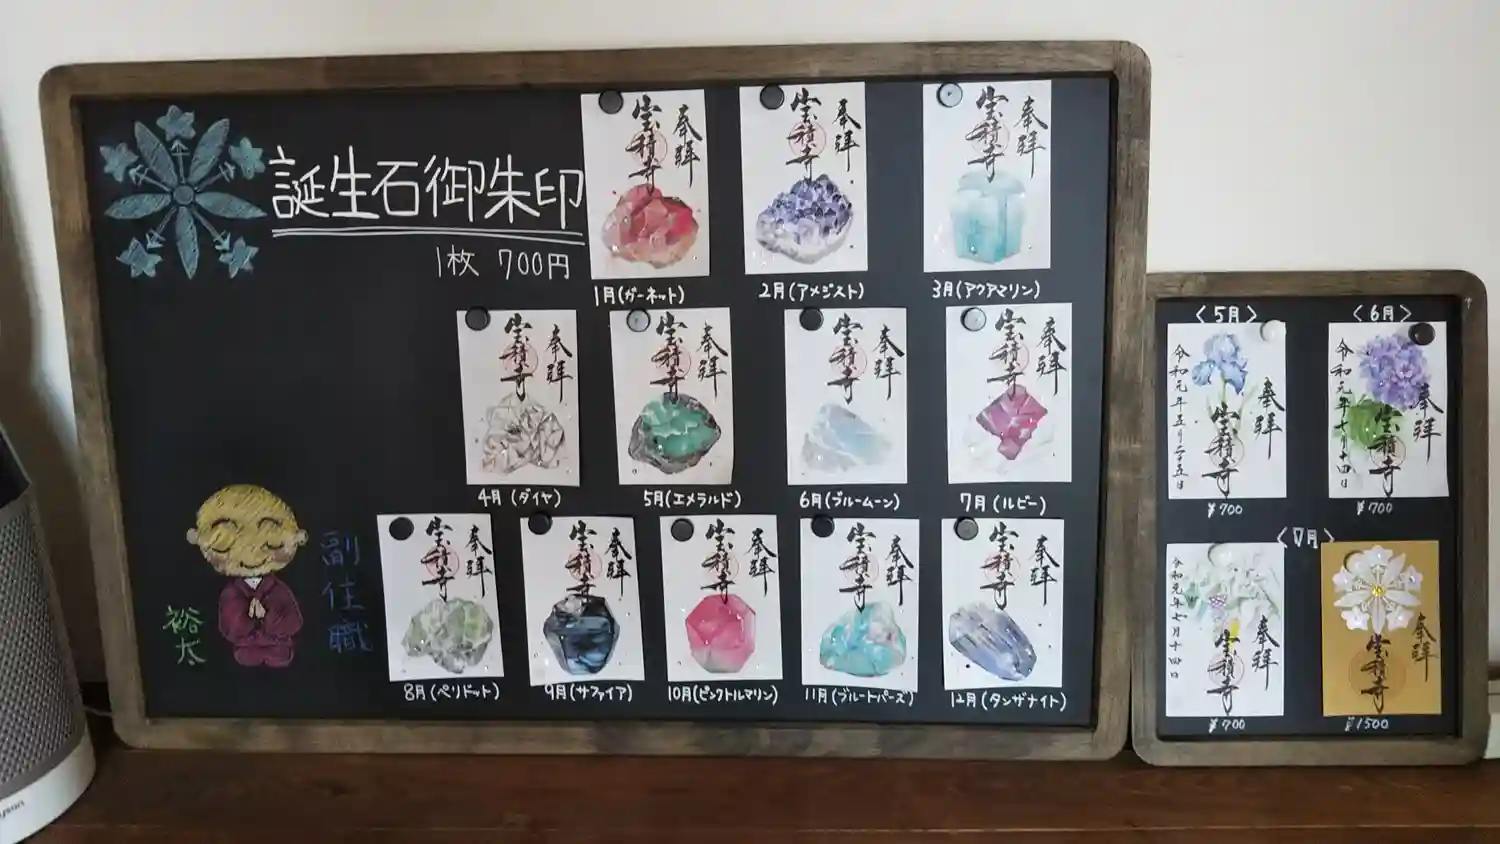 誕生石御朱印
1枚 700円
奉拝
宝積寺
1月(ガーネット)
奉拝
宝積寺
2月(アメジスト)
奉拝
宝積寺
3月(アクアマリン)
奉拝
宝積寺
4月(ダイヤ)
奉拝
宝積寺
5月(エメラルド)
奉拝
宝積寺
6月(ブルームーン)
奉拝
宝積寺
7月(ルビー)
奉拝
宝積寺
8月(ペリドット)
奉拝
宝積寺
9月(サファイア)
奉拝
宝積寺
10月(ピンクトルマリン)
奉拝
宝積寺
11月(ブルートパーズ)
奉拝
宝積寺
12月(タンザナイト)
副住職
裕太
〈5月〉
奉拝
宝積寺
令和元年五月二十五日
¥700
〈6月〉
奉拝
宝積寺
令和元年七月十四日
¥700
〈7月〉
奉拝
宝積寺
令和元年七月十四日
¥700
奉拝
宝積寺
¥1500